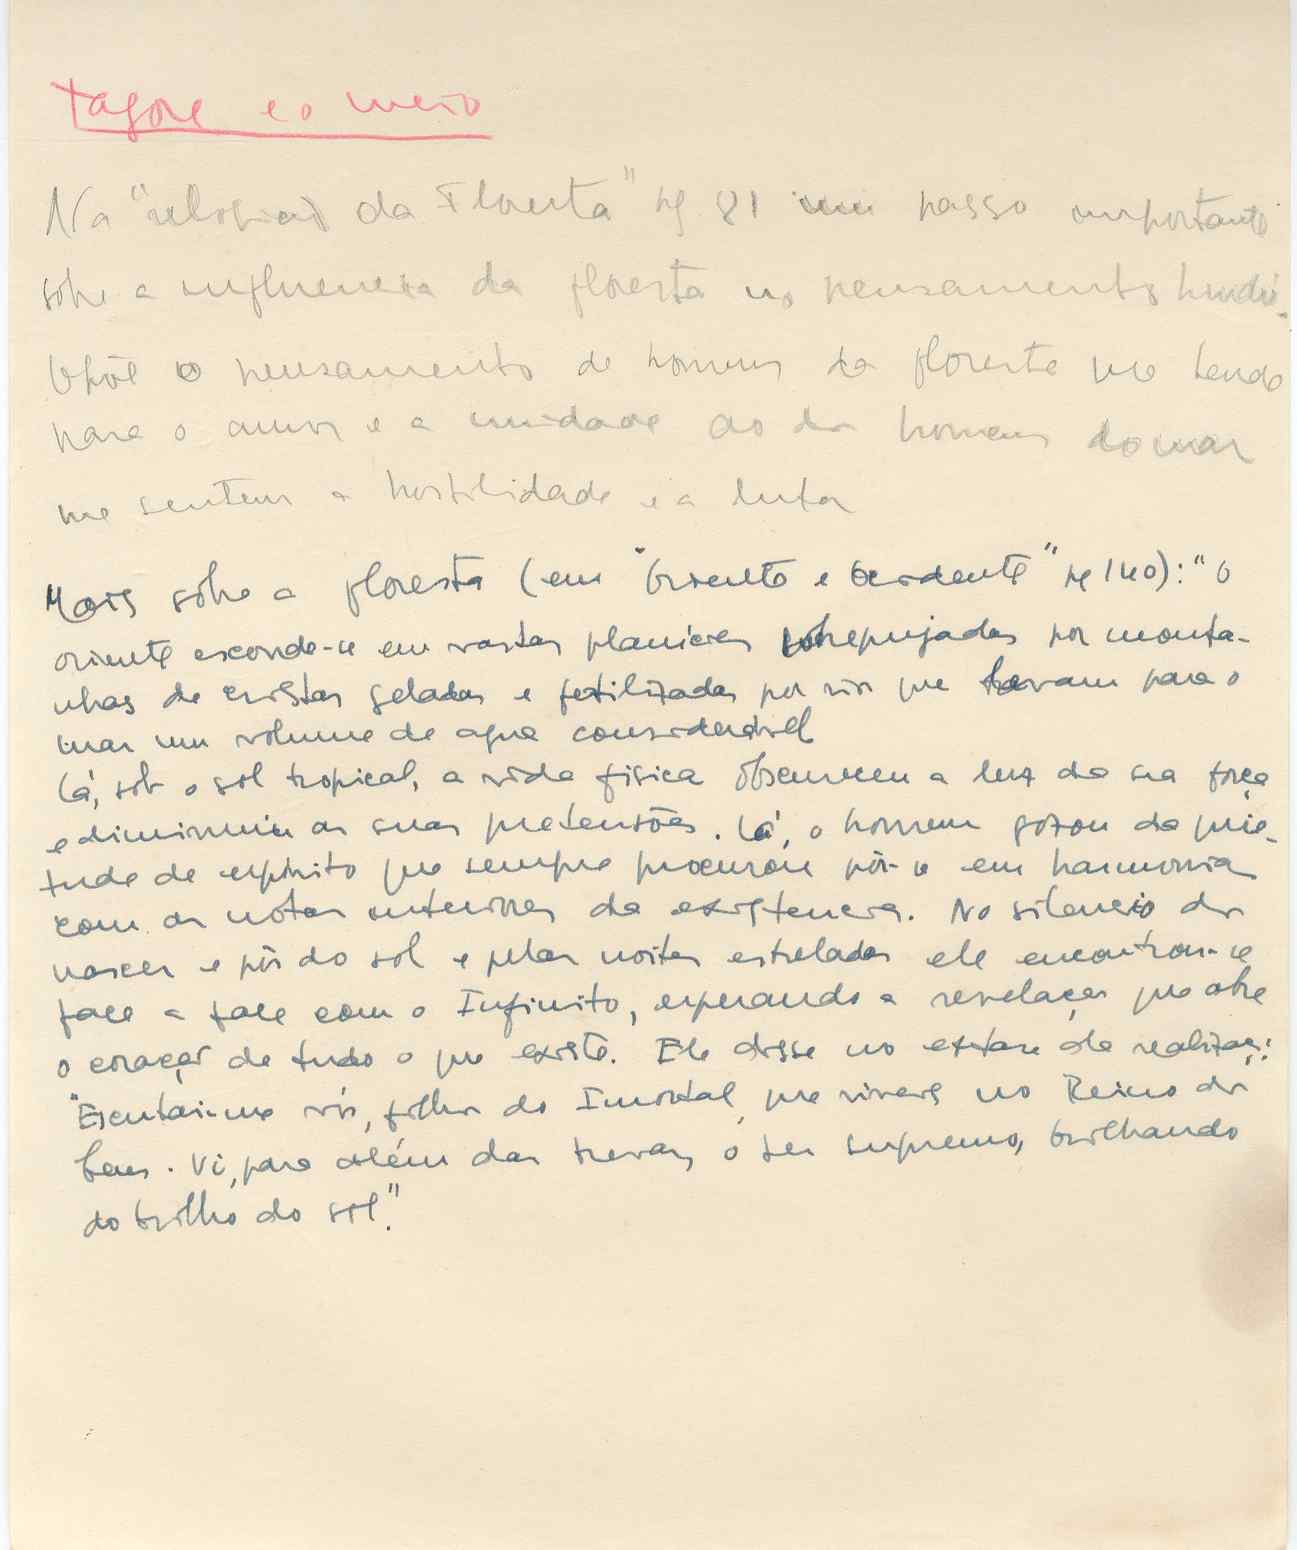 Tagore e o meio
Na "religião da Floresta" pg 81 um passo importante
sobre a influencia da floresta no pensamento hindú.
Opõe o pensamento de homem da floresta que tende
para o amor e a unidade ao do homem do mar
que sentem a hostilidade e a luta
Mais sôbre a floresta (em "Oriente e Ocidente" pg 140): "O
oriente esconde-se em vastas planícies sobrepujadas por monta-
nhas de cristas geladas e fertilizadas por rios que levam para o
mar um volume de agua considerável
Lá, sob o sol tropical, a vida fisica obscureceu a luz da sua força
e diminuiu as suas pretensões. Lá, o homem gozou da quie-
tude de espírito que sempre procurou pôr-se em harmonia
com as notas interiores da existencia. No silencio do
nascer e pôr do sol e pelas noites estreladas ele encontrou-se
face a face com o Infinito, esperando a revelação que abre
o coração de tudo o que existe. Ele disse no extase da realização:
"Escutai-me vós, filhos do Imortal, que viveis no Reino do
bem. Vi, para além das trevas, o ser supremo, brilhando
do brilho do sol."